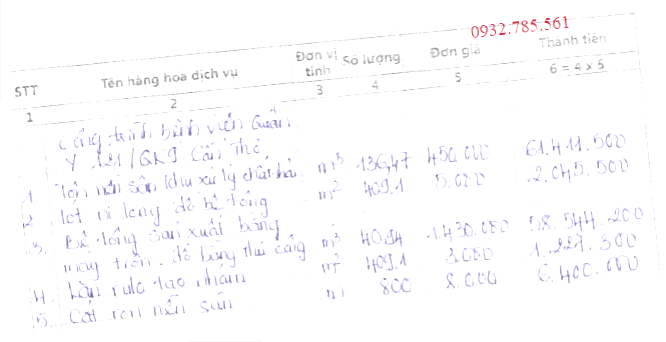 0932.785.561
STT Tên hàng hóa dịch vụ Đơn vị tính Số lượng Đơn giá Thành tiền
1 2 3 4 5 6 = 4 x 5
Công trình bệnh viện Quân
Y 121/QK9 Cần Thơ
1. nền sân khu xử lý chất thải m³ 136,47 450.000 61.411.500
2. lót ni lông đổ bê tông m² 409.1 5.000 2.045.500
3. Bê tông sản xuất bằng
máy trộn. đổ bằng thủ công m³ 40.94 1.430.000 58.544.200
4. Lăn rulo tạo nhám m² 409.1 3.000 1.227.300
5. Cắt ron nền sân m 800 8.000 6.400.000